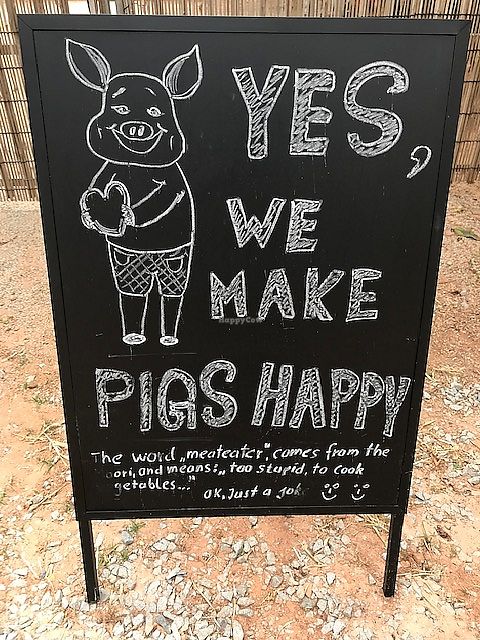 YES,
WE
MAKE
HappyCow
PIGS HAPPY
The word „meateater", comes from the
ori, and means: „ too stupid, to cook
getables..."
OK, Just a joke